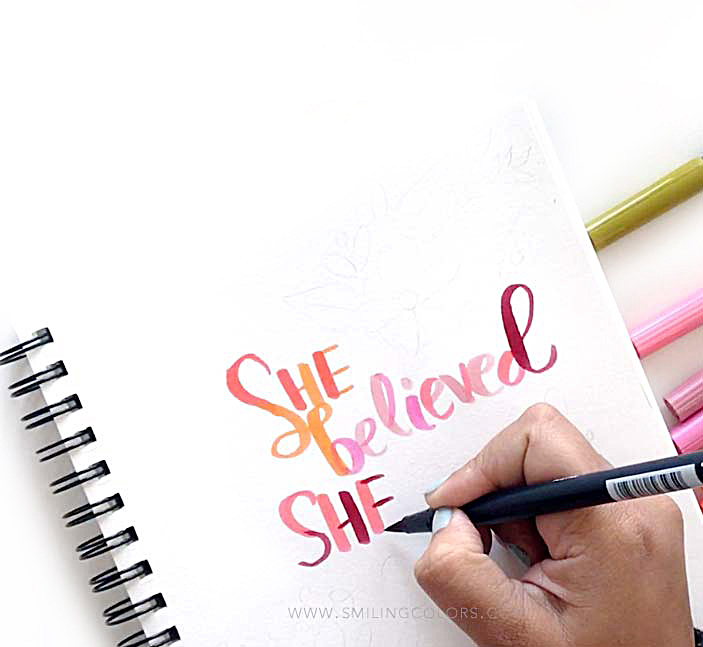 SHE
believed
SHE
WWW.SMILINGCOLORS.CO